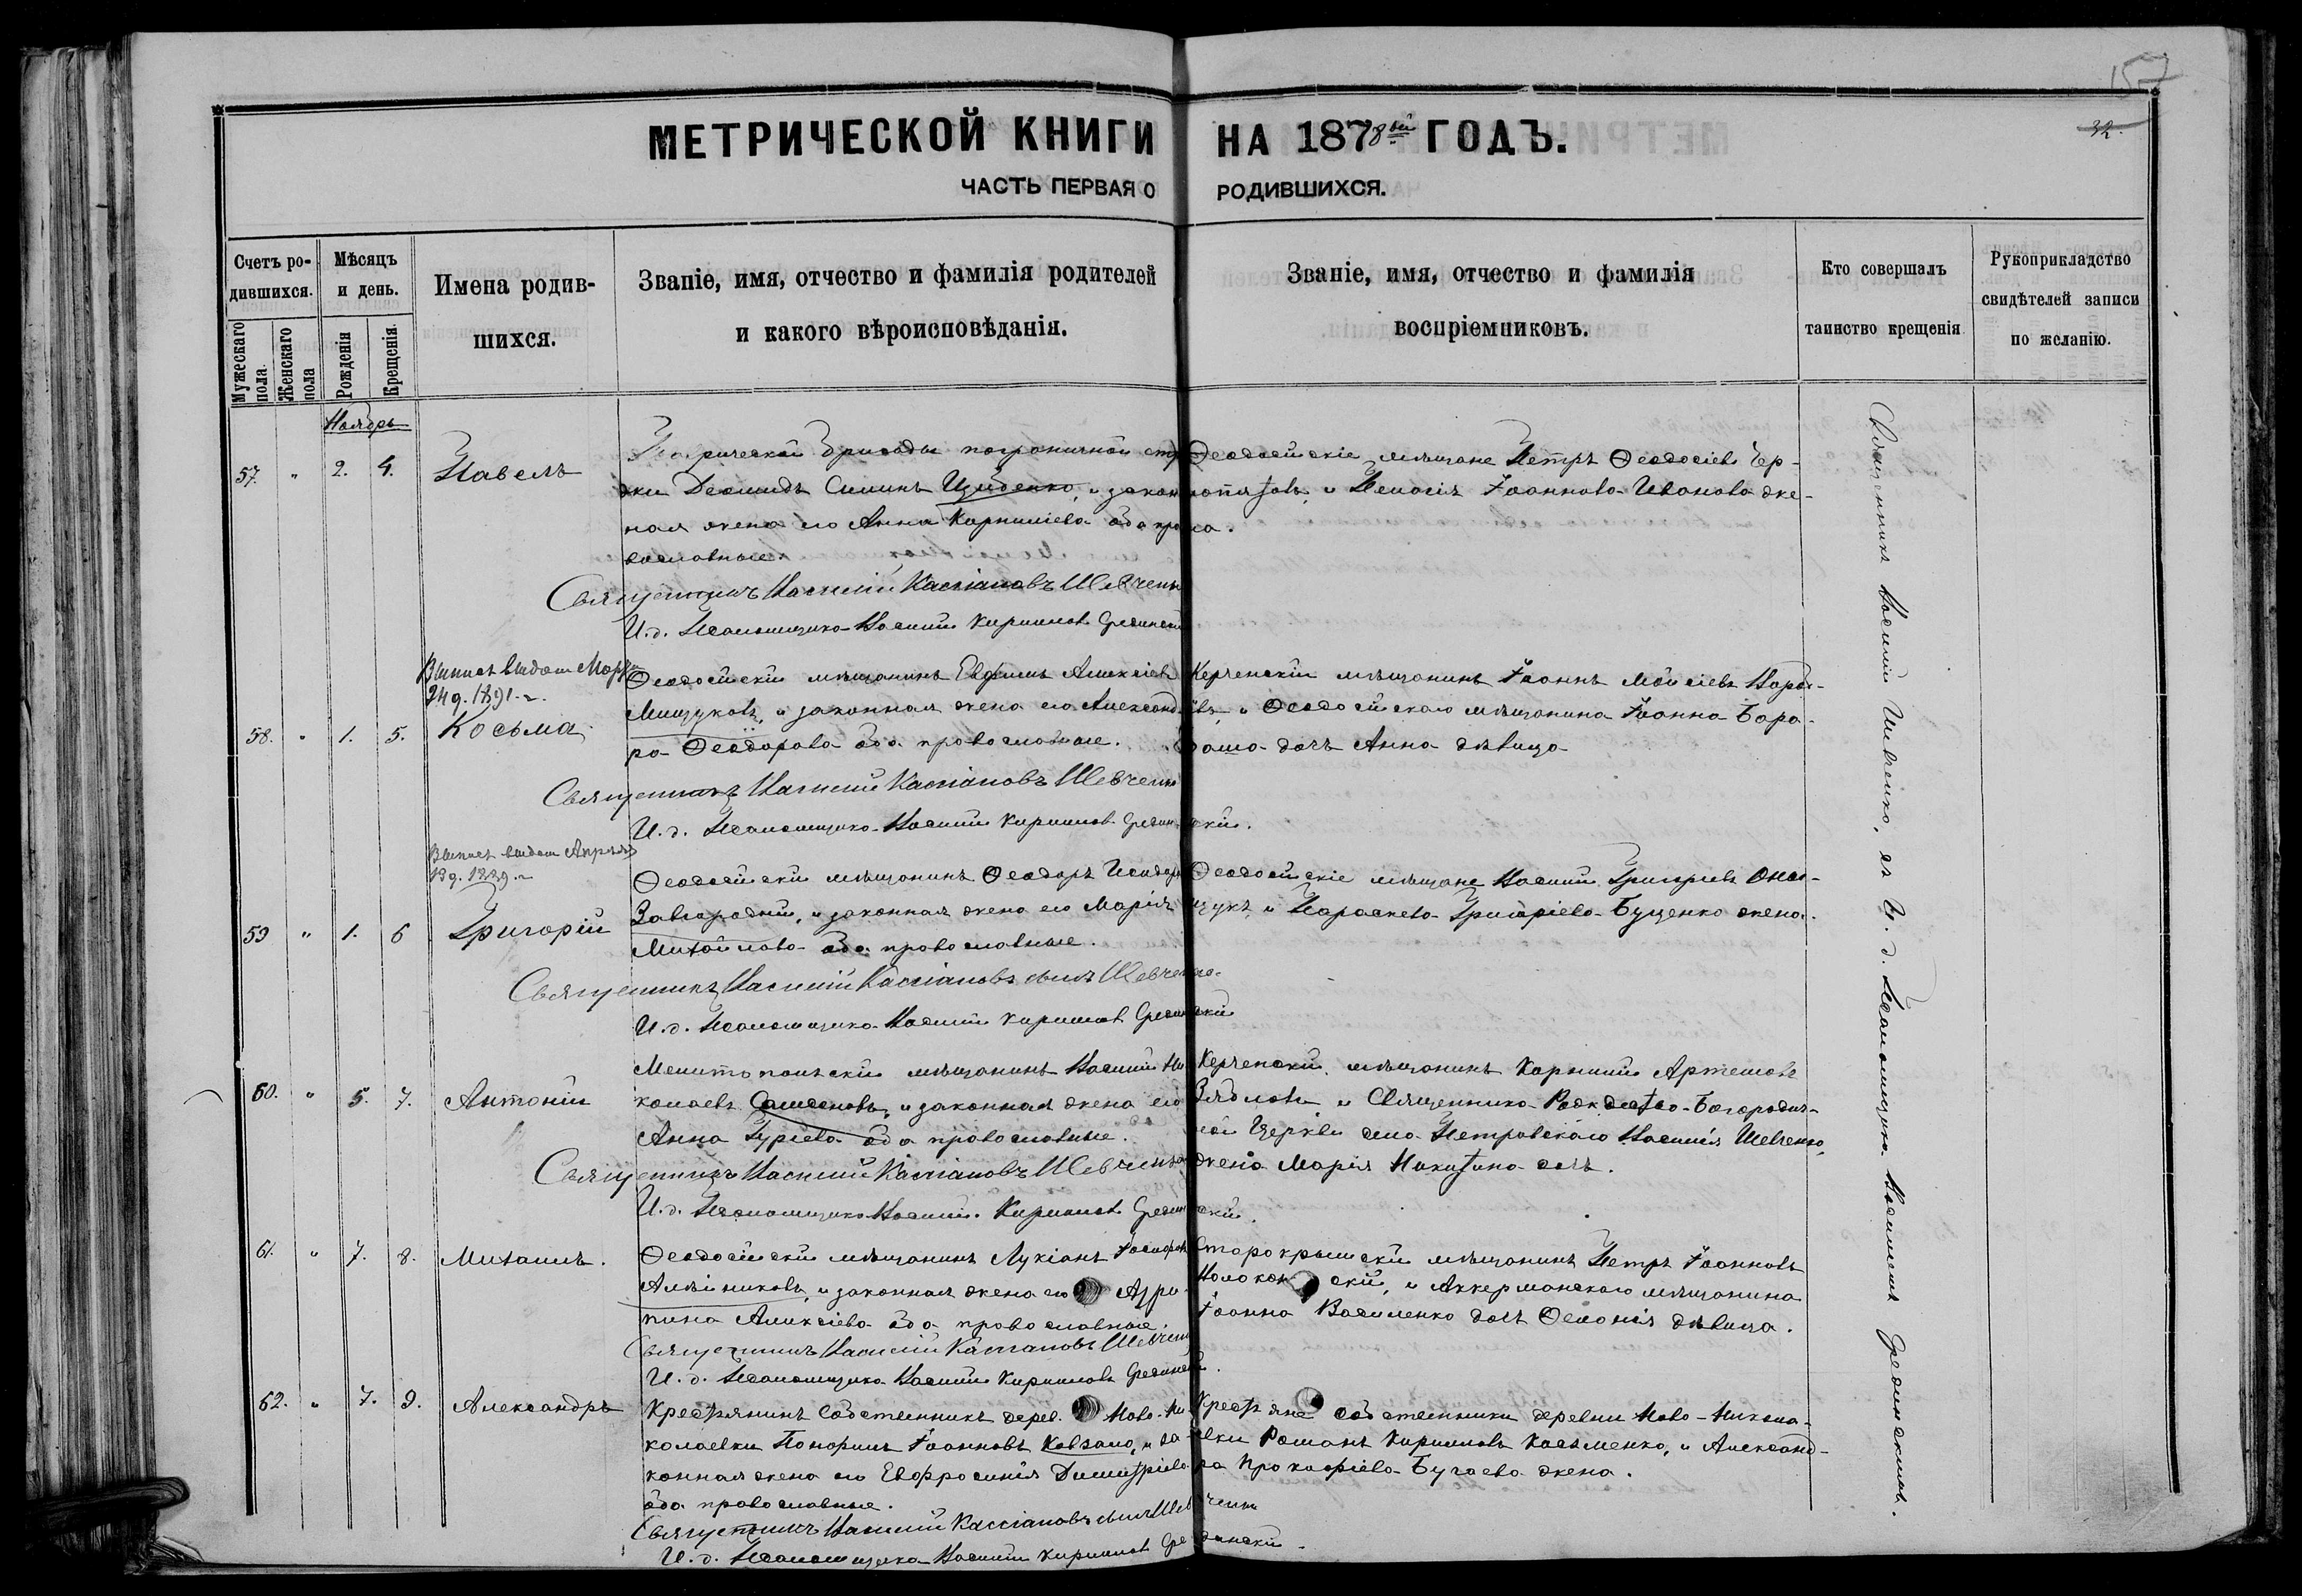 157
32.
МЕТРИЧЕСКОЙ КНИГИ НА 1878ый ГОДЪ.
ЧАСТЬ ПЕРВАЯ О РОДИВШИХСЯ.
Счетъ родившихся.
Мужескаго пола.
Женскаго пола
Мѣсяцъ и день.
Рожденія
Крещенія.
Имена родившихся.
Званіе, имя, отчество и фамилія родителей
и какого вѣроисповѣданія.
Званіе, имя, отчество и фамилія
воспріемниковъ.
Кто совершалъ
таинство крещенія
Рукоприкладство
свидѣтелей записи
по желанію.
Ноябрь
57. " 2. 4. Павелъ
бригады пограничной стра-
жи Деомидъ Симинъ Цыбенко, и закон-
ная жена его Анна Корнилiева оба пра-
вославные.
Священникъ Василій Кассіановъ Шевченко
И. д. Псаломщика Василій Кириловъ Грединскій
Ѳеодосійскіе мѣщане Петръ Ѳеодосіевъ Чер-
нопятовъ, и Пелагія Іоаннова Иванова же-
на.
Выпись выдана Марта
24 д. 1891 г.
58. " 1. 5. Косьма
Ѳеодосійскій мѣщанинъ Евфимъ Алексіевъ
Мищуковъ, и законная жена его Александ-
ра Ѳеодорова оба православные.
Священникъ Василій Кассіановъ Шевченко
И. д. Псаломщика Василій Кириловъ Грединскій.
Керченскій мѣщанинъ Іоаннъ Мойсіевъ
и Ѳеодосійскаго мѣщанина Іоанна Бара-
баша дочь Анна дѣвица
Выпись выдана Апрѣля
19 д. 1889 г.
59 " 1. 6 Григорій
Ѳеодосійскій мѣщанинъ Ѳеодоръ Исидоровъ
Завгородній, и законная жена его Марія
Михайлова оба православные.
Священникъ Василій Кассіановъ сынъ Шевченко.
И. д. Псаломщика Василій Кириловъ Грединскій
Ѳеодосійскіе мѣщане Василій Григорьевъ Онищукъ, и Параскева Григоріева Буценко жена.
60. " 5. 7. Антоній
Мелитопольскій мѣщанинъ Василій Ни-
колаевъ Самсоновъ, и законная жена его
Анна Гуріева оба православные.
Священникъ Василій Кассіановъ Шевченко
И. д. Псаломщика Василій Кириловъ Грединскій.
Керченскій мѣщанинъ Корнилій Артемовъ
Зябловъ и Священника Рождество-Богородич-
ной Церкви села Петровскаго Василія Шевченко,
жена Марія Никитина
61. " 7. 8. Михаилъ.
Ѳеодосійскій мѣщанинъ Лукіанъ
Алейниковъ, и законная жена его Агри-
пина Алексіева оба православные.
Священникъ Василій Кассіановъ Шевченко
И. д. Псаломщика Василій Кириловъ Грединскій.
Старокрымскій мѣщанинъ Петръ Іоанновъ
и Аккерманскаго мѣщанина
Іоанна Василенко дочь Ѳеодосія дѣвица.
62. " 7. 9. Александръ
Крестьянинъ Собственникъ дерев. Ново-Ни-
колаевки Іоанновъ Ковзало, и за-
конная жена его Евфросинія Димитріева
оба православные.
Священникъ Василій Кассіановъ сынъ Шевченко
И. д. Псаломщика Василій Кириловъ Грединскій.
Крестьяне собственники деревни Ново-Никола-
евки Романъ Кириловъ Касьменко, и Александ-
ра Прокофіева Бугаева жена.
Священникъ Василій Шевченко, съ И. д. Псаломщика Василіемъ Грединскимъ.